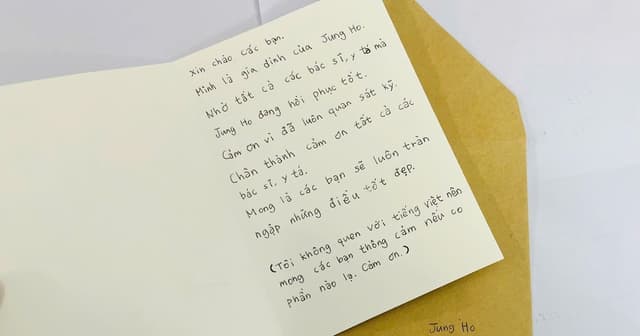 Xin chào các bạn.
Mình là gia đình của Jung Ho.
Nhờ tất cả các bác sĩ, y tá mà
Jung Ho đang hồi phục tốt.
Cảm ơn vì đã luôn quan sát kỹ.
Chân thành cảm ơn tất cả các
bác sĩ, y tá.
Mong là các bạn sẽ luôn tràn
ngập những điều tốt đẹp.
(Tôi không quen với tiếng việt nên
mong các bạn thông cảm nếu có
phần nào lạ. Cảm ơn.)
Jung Ho